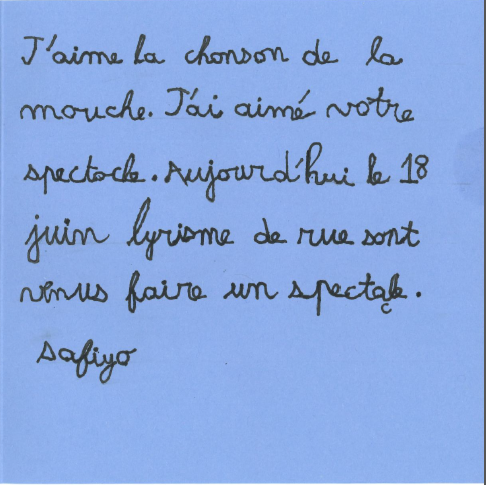 J'aime la chonson de la
mouche. J'ai aimé votre
spectocle. Aujourd'hui le 18
juin lyrisme de rue sont
venus faire un spectacle.
Safiyo